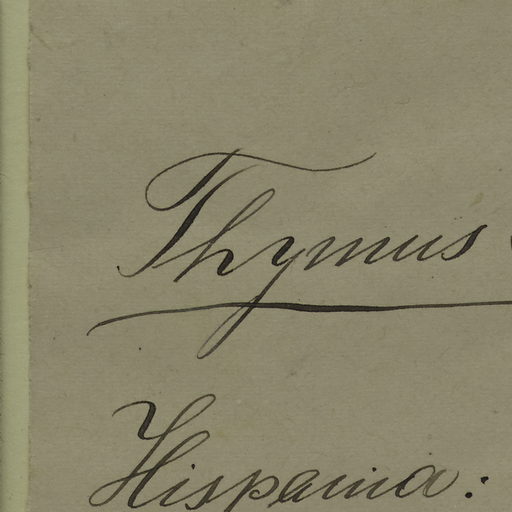 Thymus
Hispania: